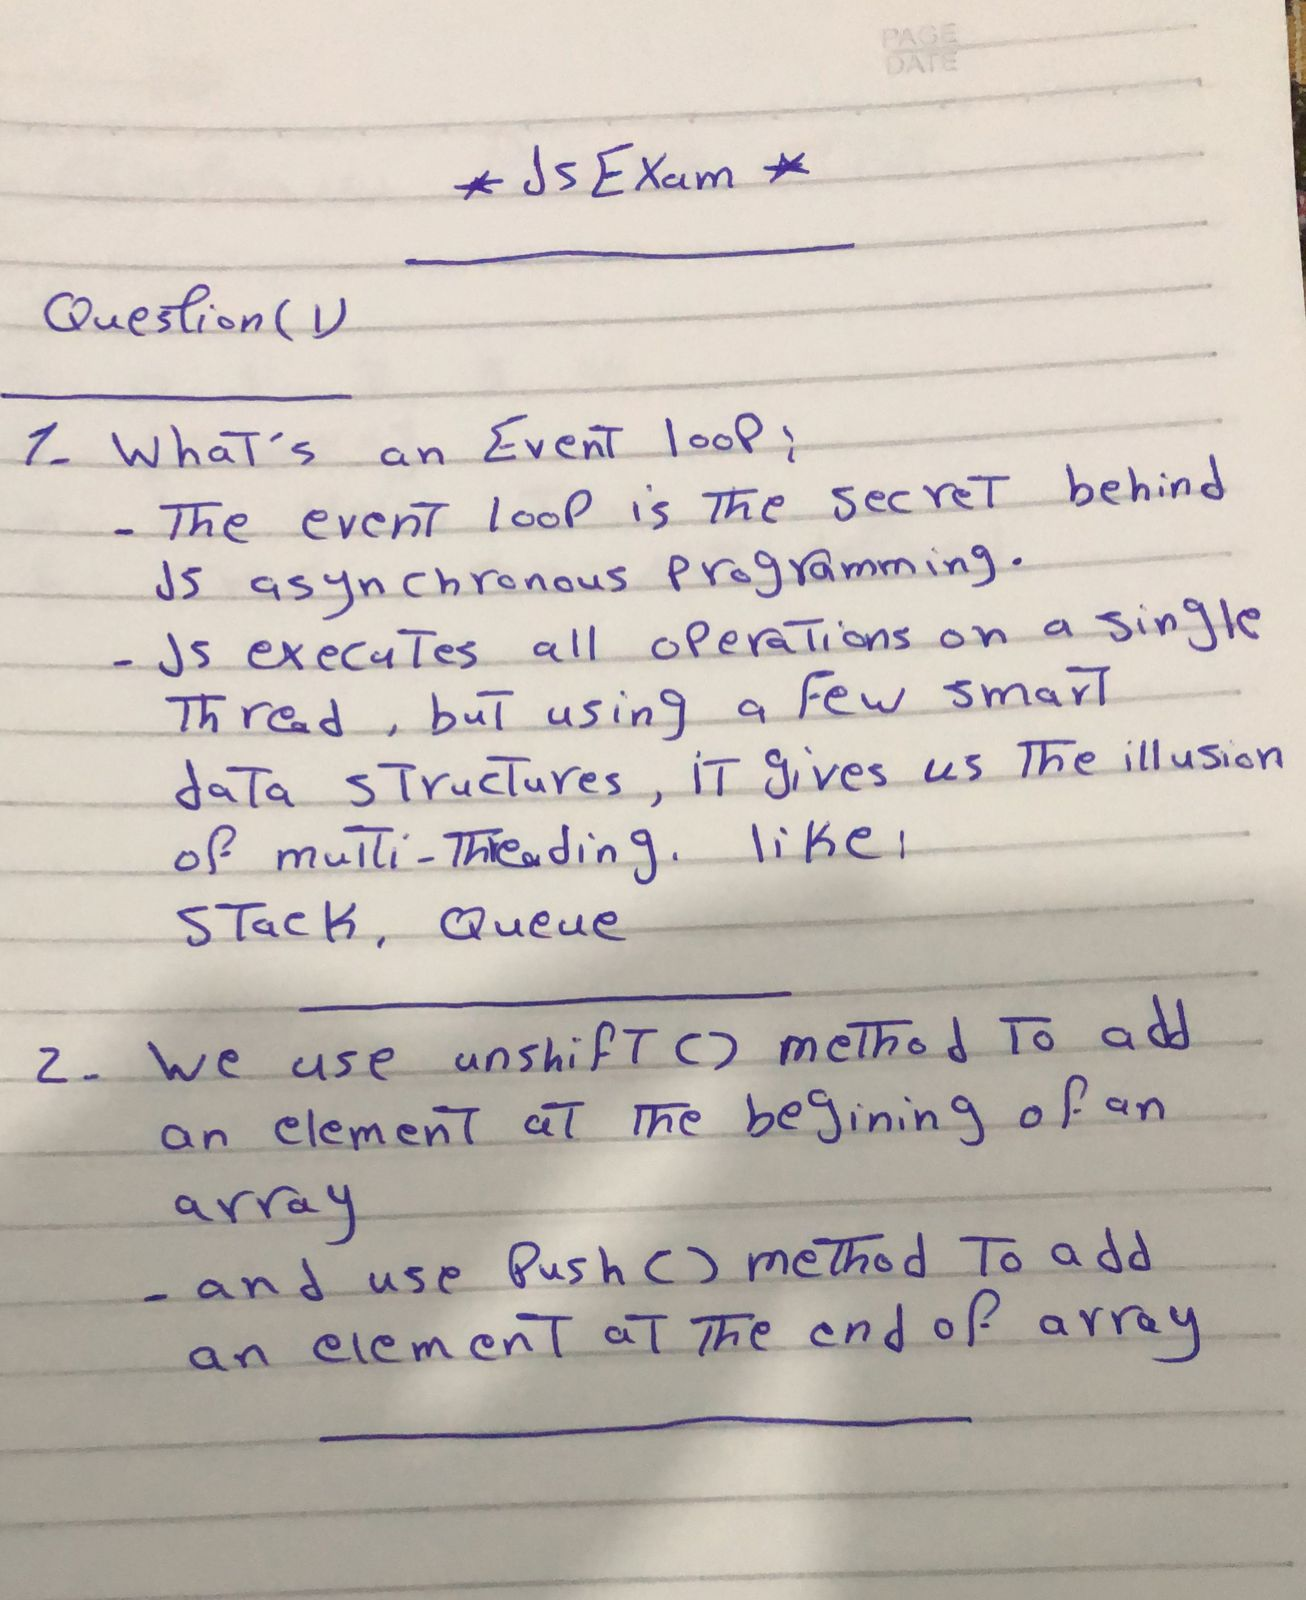 PAGE
DATE
* JS EXam *
Question(1)
1- What's an Event loop;
- The event loop is the secret behind
JS asynchronous Programming.
- Js executes all operations on a single
Thread, but using a few smart
data structures, it gives us the illusion
of multi-Threading. like:
Stack, Queue
2- We use unshift() method to add
an element at the begining of an
array
- and use Push() method To add
an element at the end of array